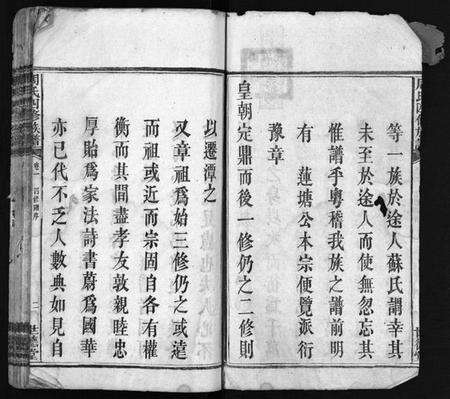 等一族於途人蘇氏謂幸其
未至於途人而使無忽忘其
惟譜乎粤稽我族之譜前明
有蓮塘公本宗便覽派衍
豫章
皇朝定鼎而後一修仍之二修則
以遷潭之
叉章祖爲始三修仍之或遠
而祖或近而宗固自各有權
衡而其間盡孝友敦親睦忠
厚貽爲家法詩書蔚爲國華
亦已代不乏人數典如見自
周氏四修族譜
卷一
四修譜序
二